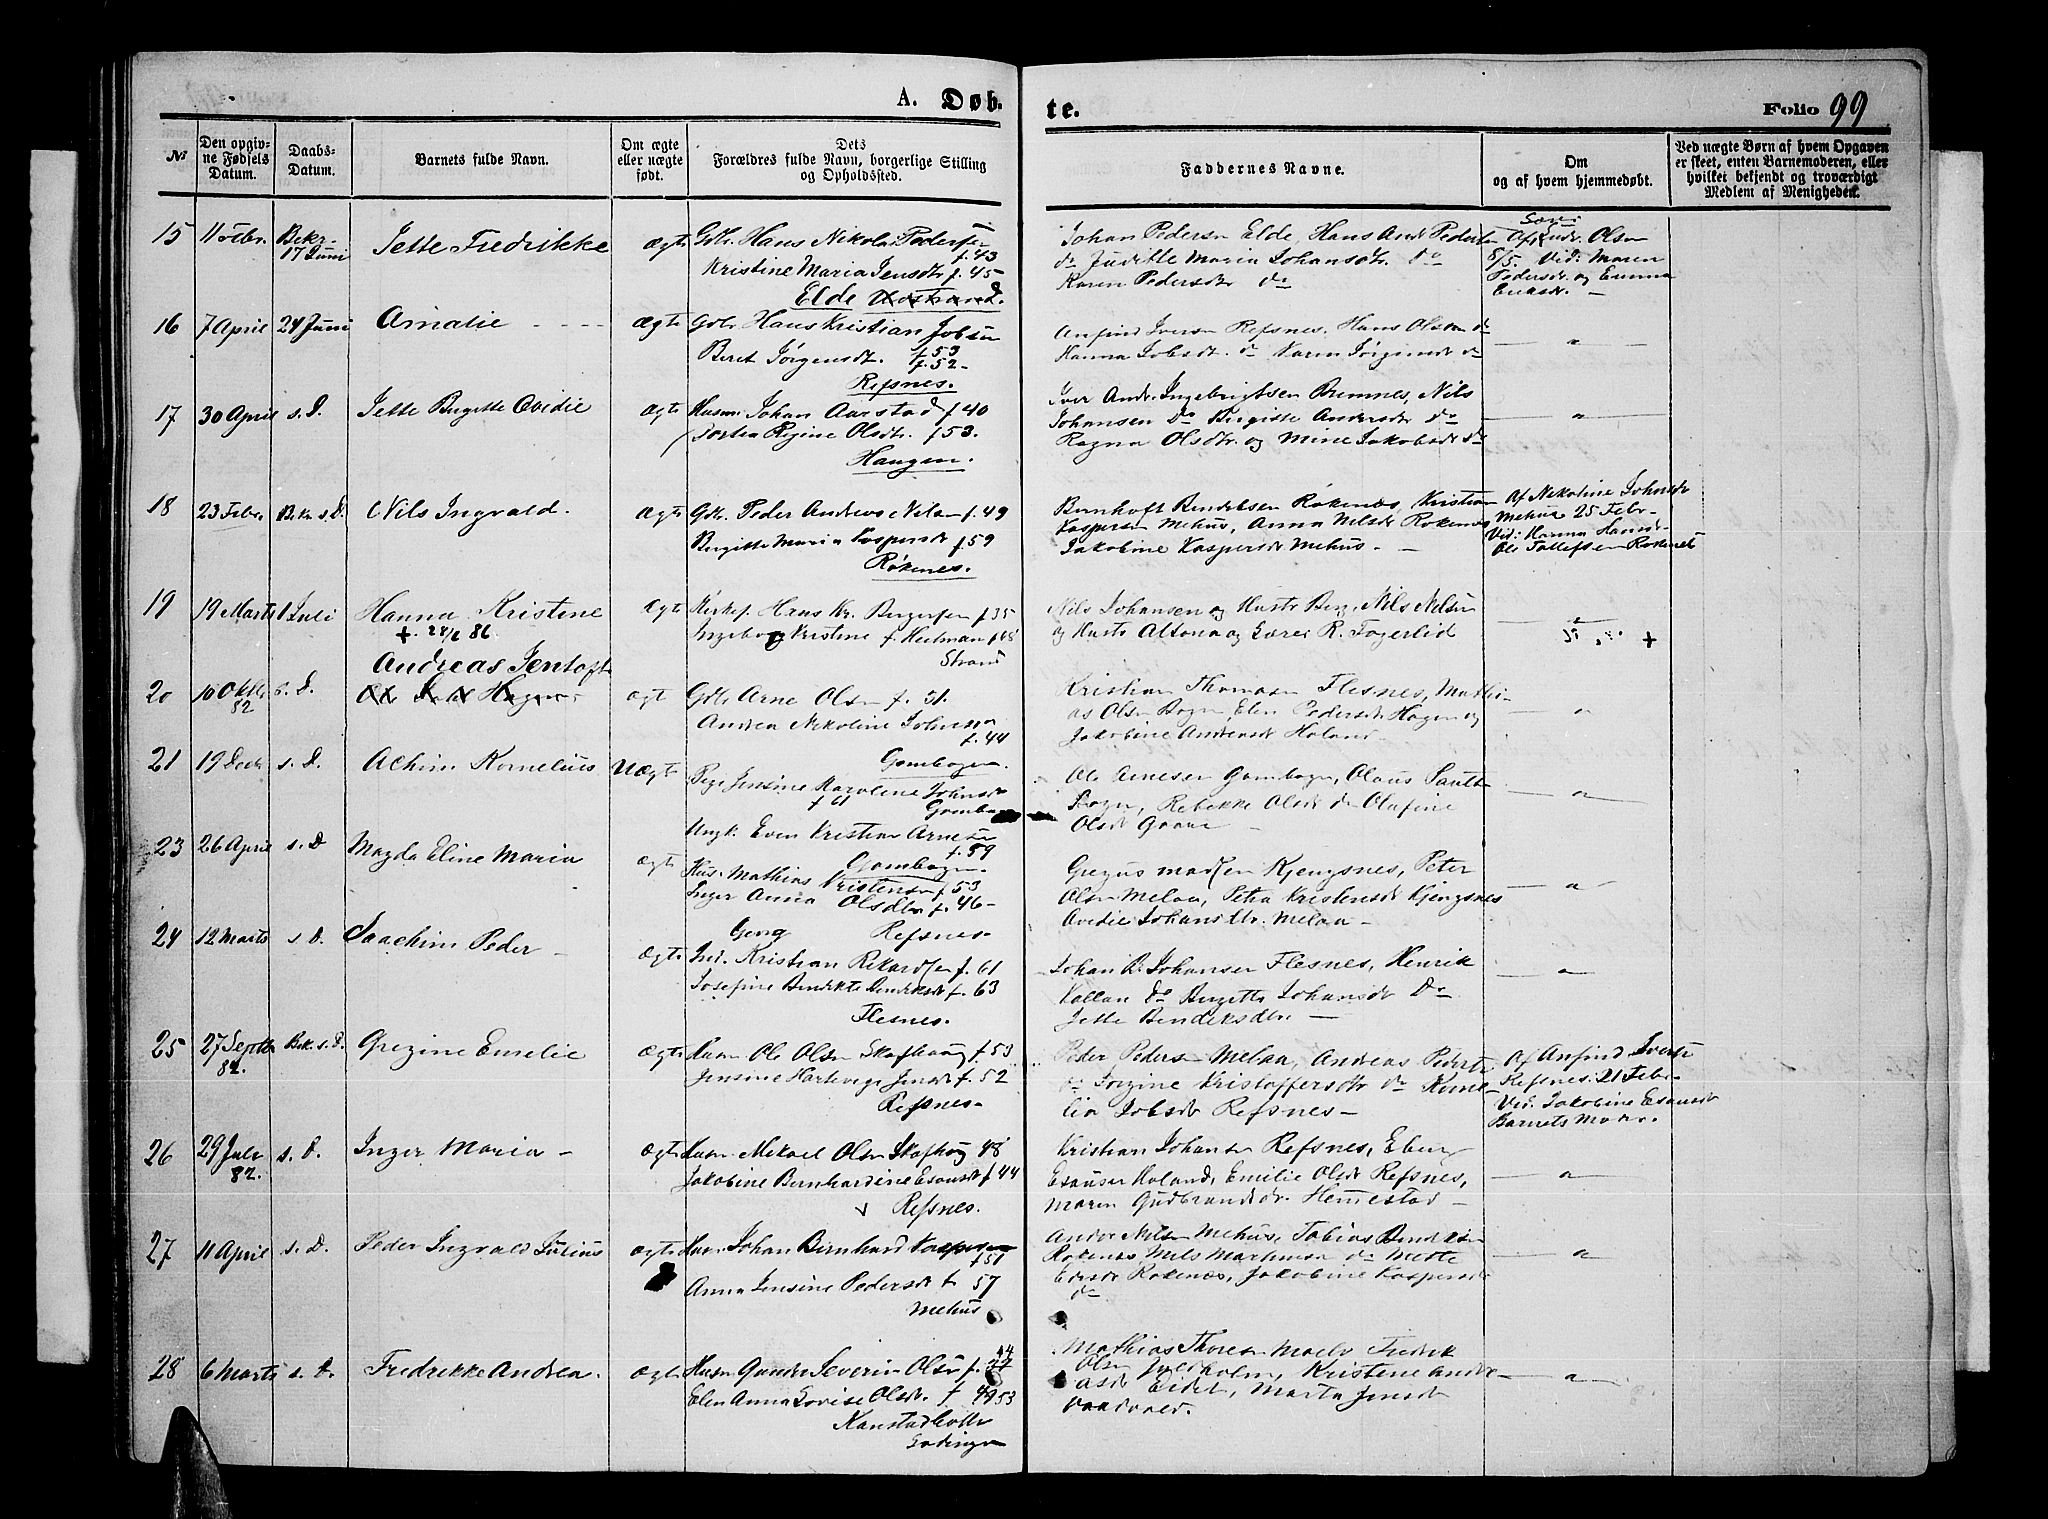 A. Døb-
te.
Folio 99
№
Den opgiv-
ne Fødsels
Datum.
Daabs-
Datum.
Barnets fulde Navn.
Om ægte
eller uægte
født.
Dets
Forældres fulde Navn, borgerlige Stilling
og Opholdssted.
Faddernes Navne.
Om
og af hvem hjemmedøbt.
Ved uægte Børn af hvem Opgaven
er skeet, enten Barnemoderen, eller
hvilket bekjendt og troværdigt
Medlem af Menigheden.
15 11 Febr. Bekr. 17 Juni Jette Fredrikke ægte Gdbr. Hans Nikolai Pedersen f. 43
Kristine Maria Jensdtr. f. 45
Elde
Johan Pedersen Elde, Hans And. Pedersen
do Judithe Maria Johansdtr. do
Karen Pedersdtr do
Af Andr. Olsen
8/5. Vid: Maren
Pedersdr. og Emma
16 7 April 24 Juni Amalie ægte Gdbr Hans Kristian Jobsen f. 53
Beret Jørgensdt. f. 52
Refsnes.
Anfind Iversen Refsnes. Hans Olsen do
Hanna Jobsdt. do Karen Jørgensdt do
17 30 April s. D. Jette Birgitte Ovidie ægte Husm. Johan Aarstad f. 40
Dortea Regine Olsdtr. f. 53.
Haugen.
Iver Andr. Ingebrigtsen Bremnes, Nils
Johansen Do Birgitte Andersdr do
Ragna Olsdtr. og Mine Jakobsdr do
18 23 Febr. Bekr s. D. Nils Ingvald. ægte Gdbr. Peder Andreas Nilsen f. 49
Birgitte Maria Kaspersdt f. 59
Røkenes.
Bernhoft Bendiksen Røkenæs, Kristian
Kaspersen Mehus, Anna Nilsdt Røkenæs
Jakobine Kaspersdt Mehus.
Af Nikoline Johnsdt
Mehus 25 Febr.
Vid: Hanna Hansdr.
Ole Tollefsen Røkenes
19 19 Marts 1 Juli Hanna Kristine ægte Hans Kr. Bergersen f. 35
Ingeborg Kristine f. Heitman f. 48
Strand
Nils Johansen og Hustr Berg, Nils Nilsen
og Hustr Altona og Lærer R. Fagerlid
Andreas Jentoft
20 10 Oktbr 82 s. D. ægte Gdbr Arne Olsen f. 51.
Andrea Nikoline Johnsen f. 44
Gombogen
Kristian Thomasen Flesnes, Mathi-
as Olsen Bogen, Elen Pedersdt. Hagen og
Jakobine Andersdt Holand.
21 19 Decbr. s. D. Achim Kornelius Uægte Pige Jensine Karoline Johnsdt f. 61
Gombogen
Ungk. Even Kristian Arnesen f. 59
Gombogen.
Ole Arnesen Gombogen, Olaus
Bogen, Rebekke Olsdt do Olufine
Olsdt Gaare
23 26 April s. D Magda Eline Maria ægte Hus. Mathias Kristensen f. 53
Inger Anna Olsdtr f. 46
Refsnes.
Gregus Madsen Kjengsnes, Peter
Olsen Melaa, Petra Kristensdt Kjengsnes
Ovedie Johansdtr. Melaa
24 12 Marts s. D. Joachim Peder ægte Ind. Kristian Rikardsen f. 61
Josefine Bendikte Bendiksdt f. 63
Flesnes.
Johan B. Johansen Flesnes, Henrik
do Birgitte Johansdt Do
Jette Bendiksdtr.
25 27 Septbr 82. Bek. s. D. Gregine Emelie ægte Husm Ole Olsen Skafhaug f. 53
Jensine Hartevigs Jensdt f. 52
Refsnes
Peder Pedersen Melaa, Andreas Peders
do Jorgine Kristoffersdtr do Korne-
lia Jobsdt Refsnes
Af Anfind Iversen
Refsnes. 21 Febr.
Vid. Jakobine Esausdt
Barnets Moder.
26 29 Juli 82. s. D. Inger Maria ægte Husm Mikael Olsen Skafhog 48
Jakobine Bernhardine Esausdt f. 44
Refsnes.
Kristian Johansen Refsnes, Eberg
Esausen Holand, Emilie Olsdt Refsnes,
Maren Gudbrandsdr. Hemestad
27 11 April s. D. Peder Ingvald Julius ægte Husm. Johan Bernhard Kaspersen f. 51
Anna Jensine Pedersdt f. 57
Mehus
Andor Nilsen Mehus, Tobias Bendiksen
Røkenes Nils Martinsen do Mette
Røkenes, Jakobine Kaspersdt
do
28 6 Marts s. D. Fredrikke Andrea. ægte Husm Gunder Severin Olsen f. 44
Elen Anna Lovise Olsdr. f. 53
Kanstadbotn
Lødingen
Mathias Thoresen Fredrik
Olsen Kristine Andre-
asdt Eidet, Marta Jensdt